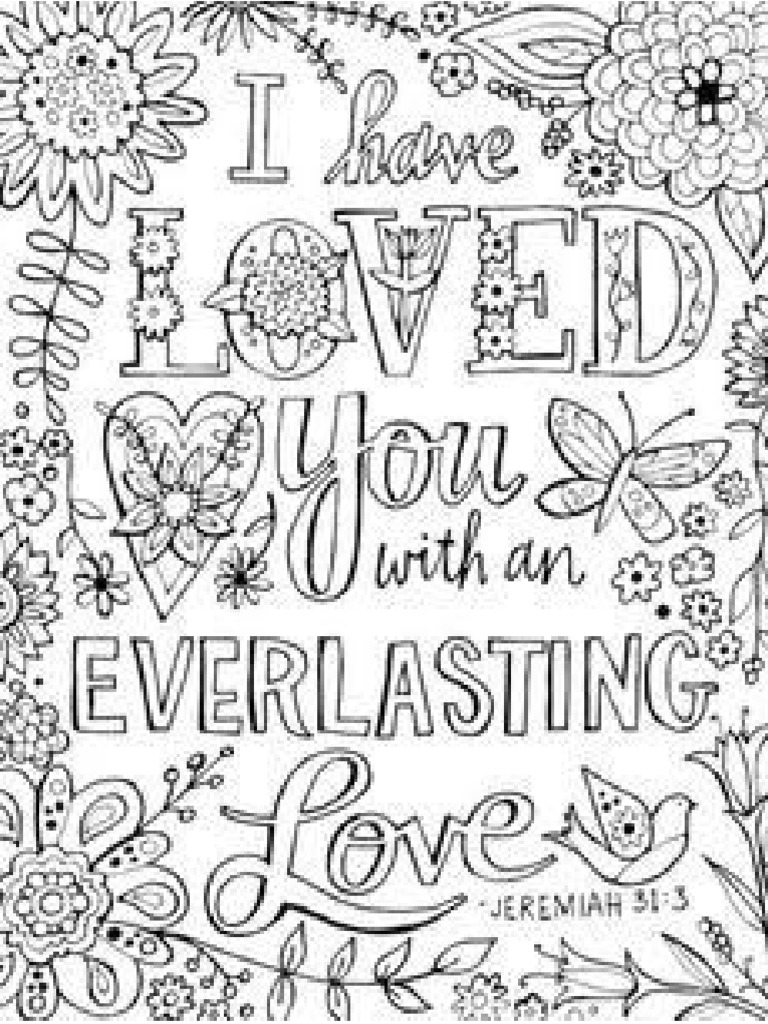 I have
LOVED
You
with an
EVERLASTING
Love
-JEREMIAH 31:3